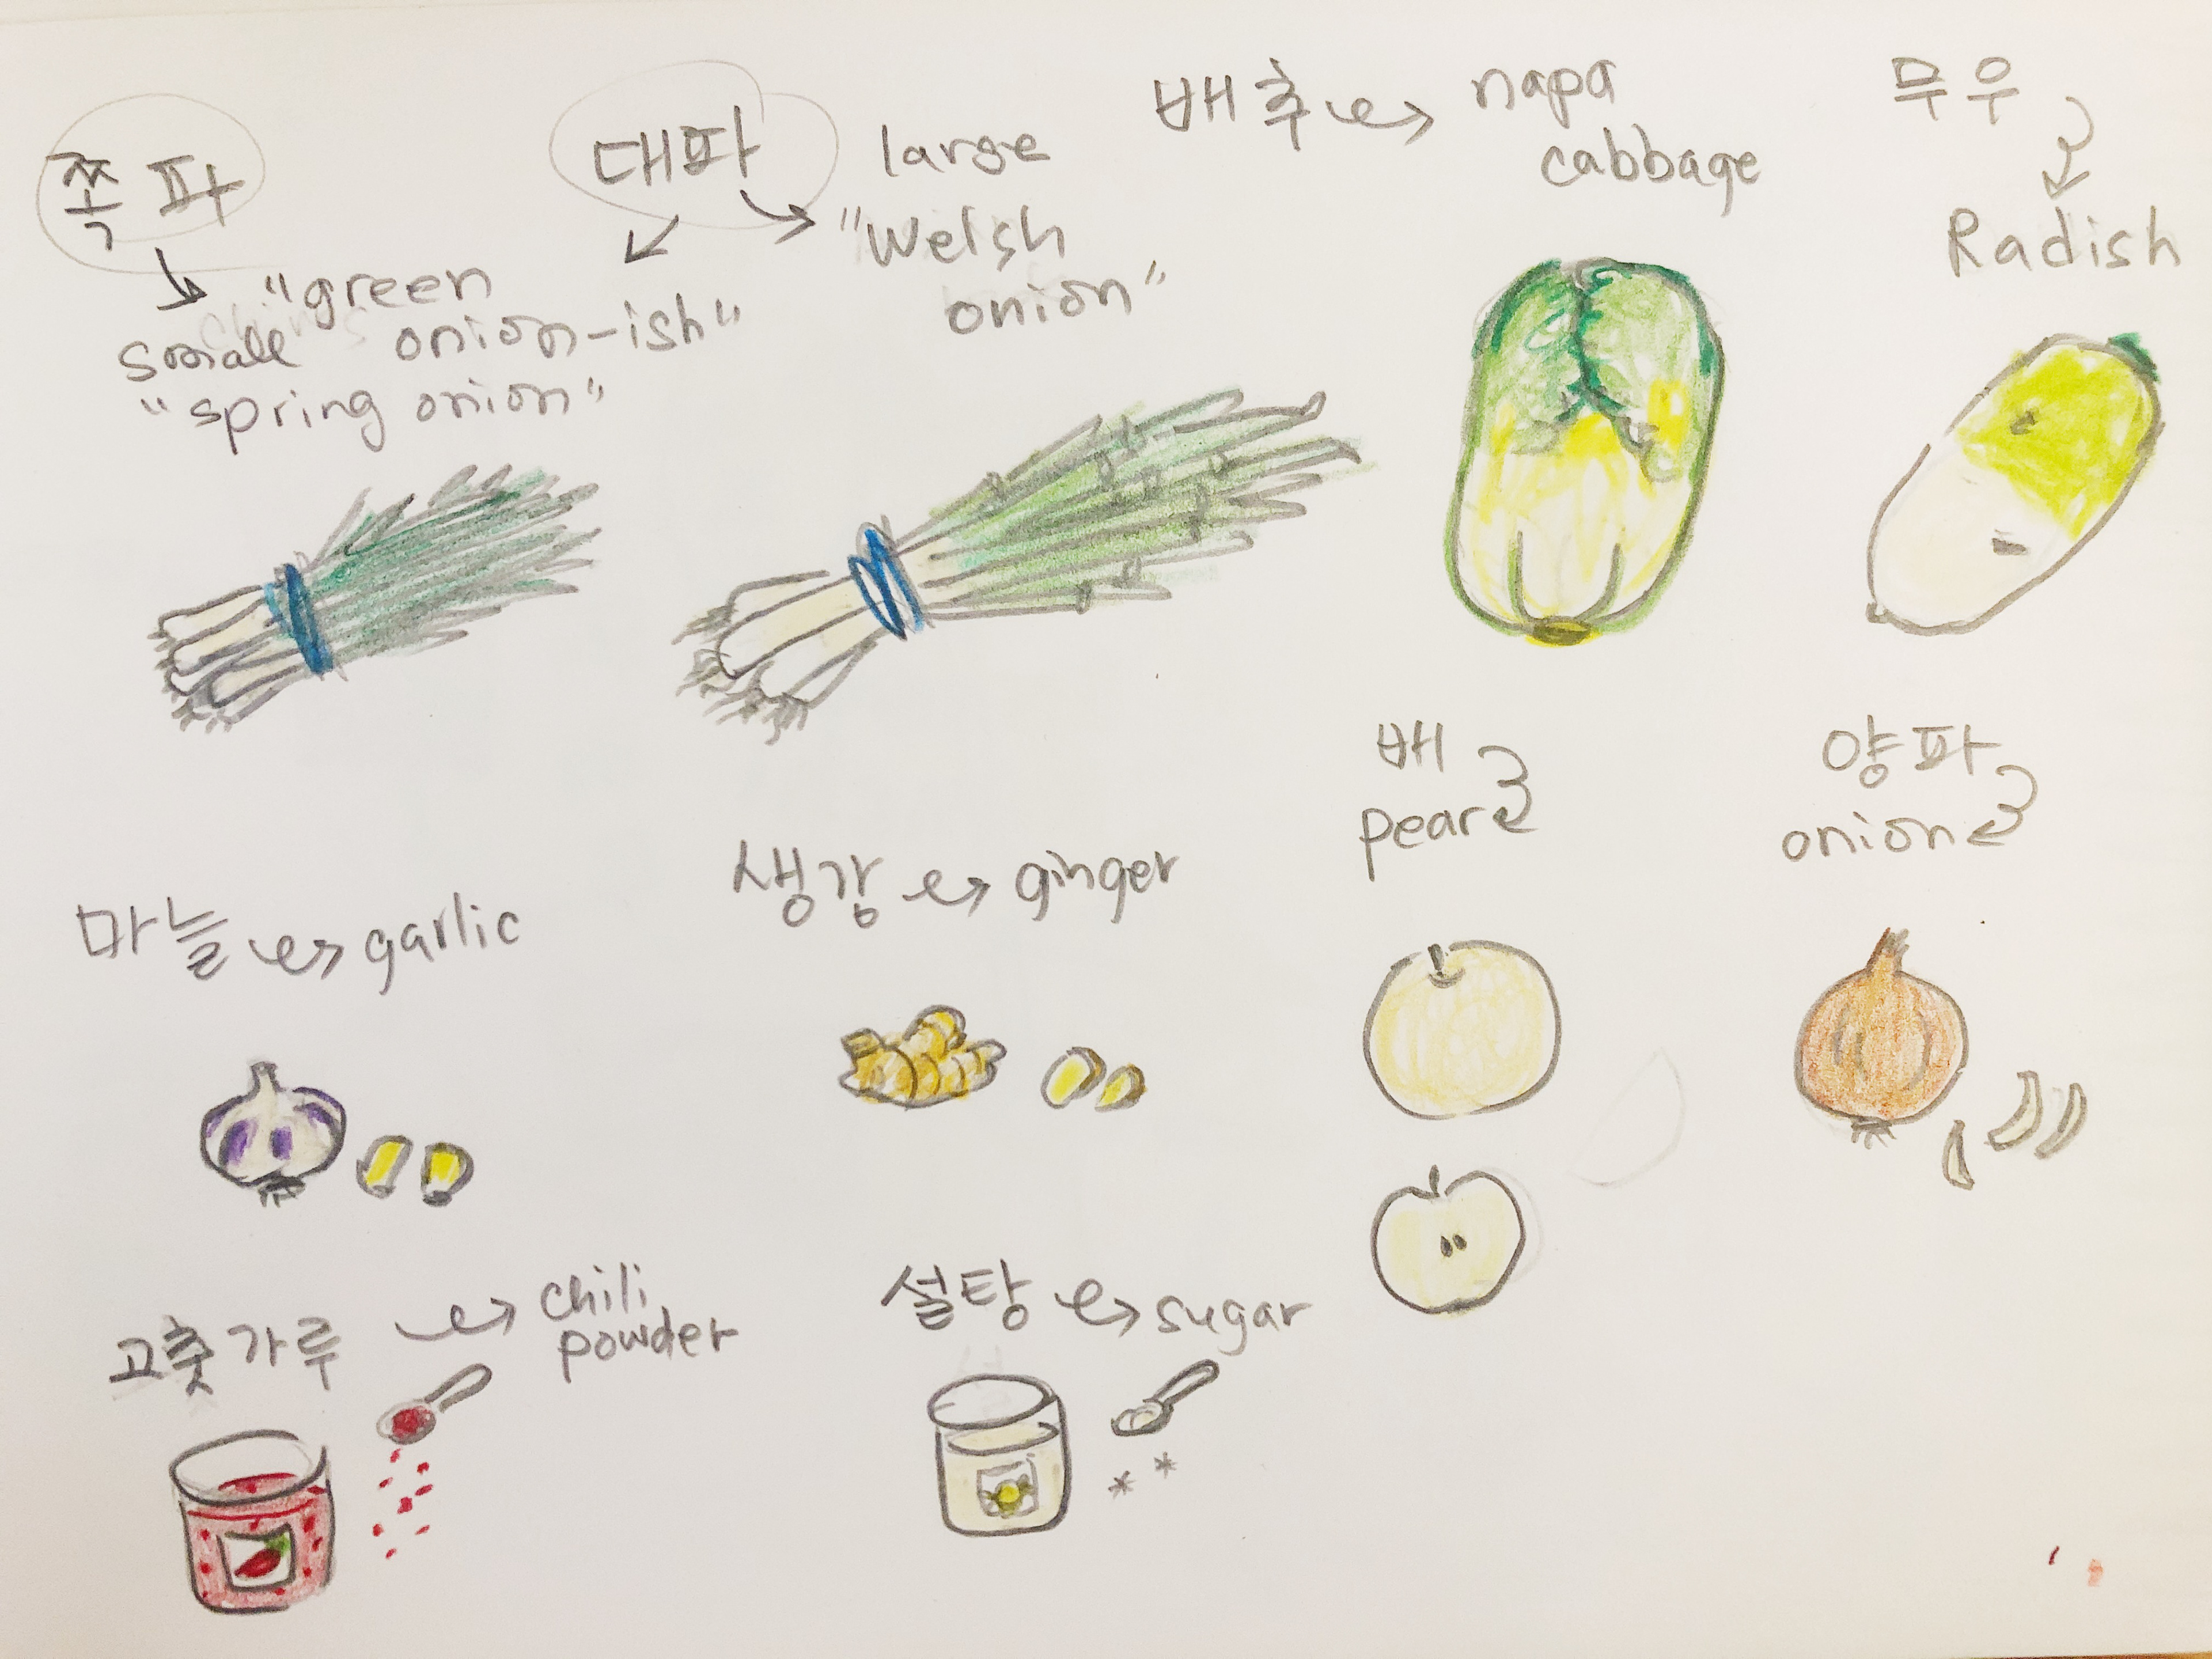 쪽파
"green
small onion-ish"
"spring onion"
대파
large
"Welsh
onion"
배추 → napa
cabbage
무우
Radish
배
pear
양파
onion
마늘 → garlic
생강 → ginger
고춧가루 → chili
powder
설탕 → sugar